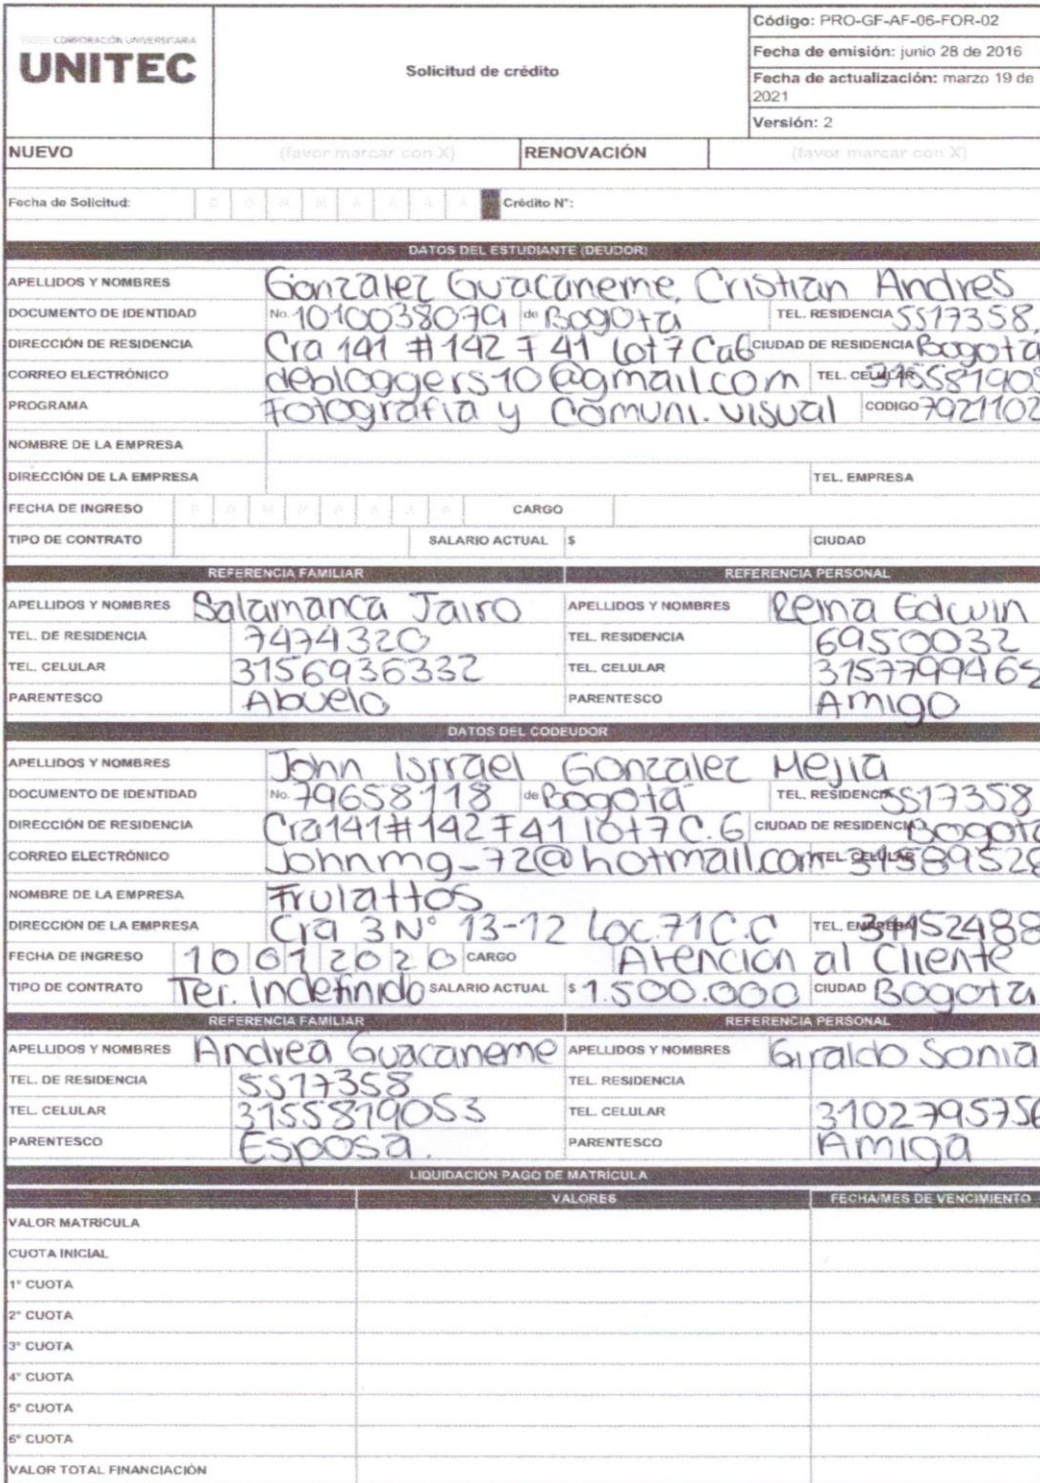 CORPORACIÓN UNIVERSITARIA
UNITEC
Solicitud de crédito
Código: PRO-GF-AF-06-FOR-02
Fecha de emisión: junio 28 de 2016
Fecha de actualización: marzo 19 de
2021
Versión: 2
NUEVO (favor marcar con X) RENOVACIÓN (favor marcar con X)
Fecha de Solicitud: D D M M A A A A Crédito N°:
DATOS DEL ESTUDIANTE (DEUDOR)
APELLIDOS Y NOMBRES Gonzalez Guacaneme, Cristian Andres
DOCUMENTO DE IDENTIDAD No. 1010038079 de Bogota TEL. RESIDENCIA 5517358
DIRECCIÓN DE RESIDENCIA Cra 141 # 142 F 41 lot 7 Ca6 CIUDAD DE RESIDENCIA Bogota
CORREO ELECTRÓNICO debloggers10@gmail.com TEL. CELULAR 315581905
PROGRAMA Fotografia y Comuni. visual CODIGO 7921102
NOMBRE DE LA EMPRESA
DIRECCIÓN DE LA EMPRESA TEL. EMPRESA
FECHA DE INGRESO D D M M A A A A CARGO
TIPO DE CONTRATO SALARIO ACTUAL $ CIUDAD
REFERENCIA FAMILIAR REFERENCIA PERSONAL
APELLIDOS Y NOMBRES Salamanca Jairo APELLIDOS Y NOMBRES Reina Edwin
TEL. DE RESIDENCIA 7474320 TEL. RESIDENCIA 6950032
TEL. CELULAR 3156936332 TEL. CELULAR 3157799465
PARENTESCO Abuelo PARENTESCO Amigo
DATOS DEL CODEUDOR
APELLIDOS Y NOMBRES John Isrrael Gonzalez Mejia
DOCUMENTO DE IDENTIDAD No. 79658118 de Bogotá TEL. RESIDENCIA 5517358
DIRECCIÓN DE RESIDENCIA Cra 141 # 142 F 41 lot 7 C.6 CIUDAD DE RESIDENCIA Bogota
CORREO ELECTRÓNICO Johnmg_72@hotmail.com TEL. CELULAR 31589528
NOMBRE DE LA EMPRESA Frulattos
DIRECCIÓN DE LA EMPRESA Cra 3 N° 13-12 Loc. 71 C.C TEL. EMPRESA
FECHA DE INGRESO 10 01 2020 CARGO Atención al Cliente
TIPO DE CONTRATO Ter. Indefinido SALARIO ACTUAL $ 1.500.000 CIUDAD Bogota
REFERENCIA FAMILIAR REFERENCIA PERSONAL
APELLIDOS Y NOMBRES Andrea Guacaneme APELLIDOS Y NOMBRES Giraldo Sonia
TEL. DE RESIDENCIA 5517358 TEL. RESIDENCIA
TEL. CELULAR 3155819053 TEL. CELULAR 3102795756
PARENTESCO Esposa. PARENTESCO Amiga
LIQUIDACIÓN PAGO DE MATRICULA
VALORES FECHA/MES DE VENCIMIENTO
VALOR MATRICULA
CUOTA INICIAL
1° CUOTA
2° CUOTA
3° CUOTA
4° CUOTA
5° CUOTA
6° CUOTA
VALOR TOTAL FINANCIACIÓN